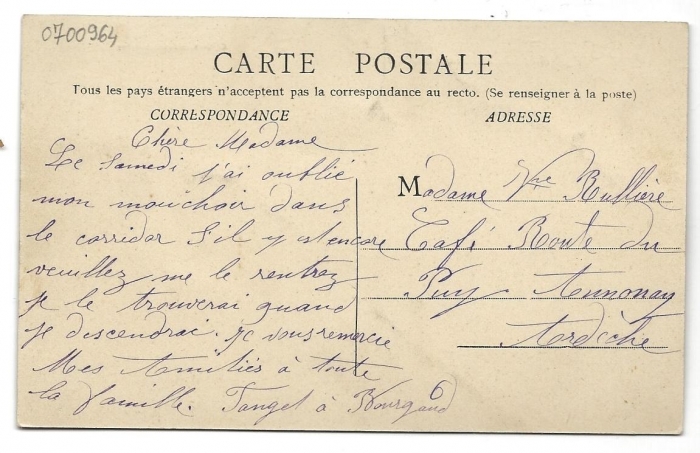 0700964
CARTE POSTALE
Tous les pays étrangers n'acceptent pas la correspondance au recto. (Se renseigner à la poste)
CORRESPONDANCE
ADRESSE
Chère Madame
Le Samedi j'ai oublié
mon mouchoir dans
le corridor S'il y est encore
veuillez me le rentrez
je le trouverai quand
je descendrai. je vous remercie
Mes Amitiés à toute
la famille. Tanget à Bourgaud
6
Madame Vve Rullière
Café Route du
Puy Annonay
Ardèche